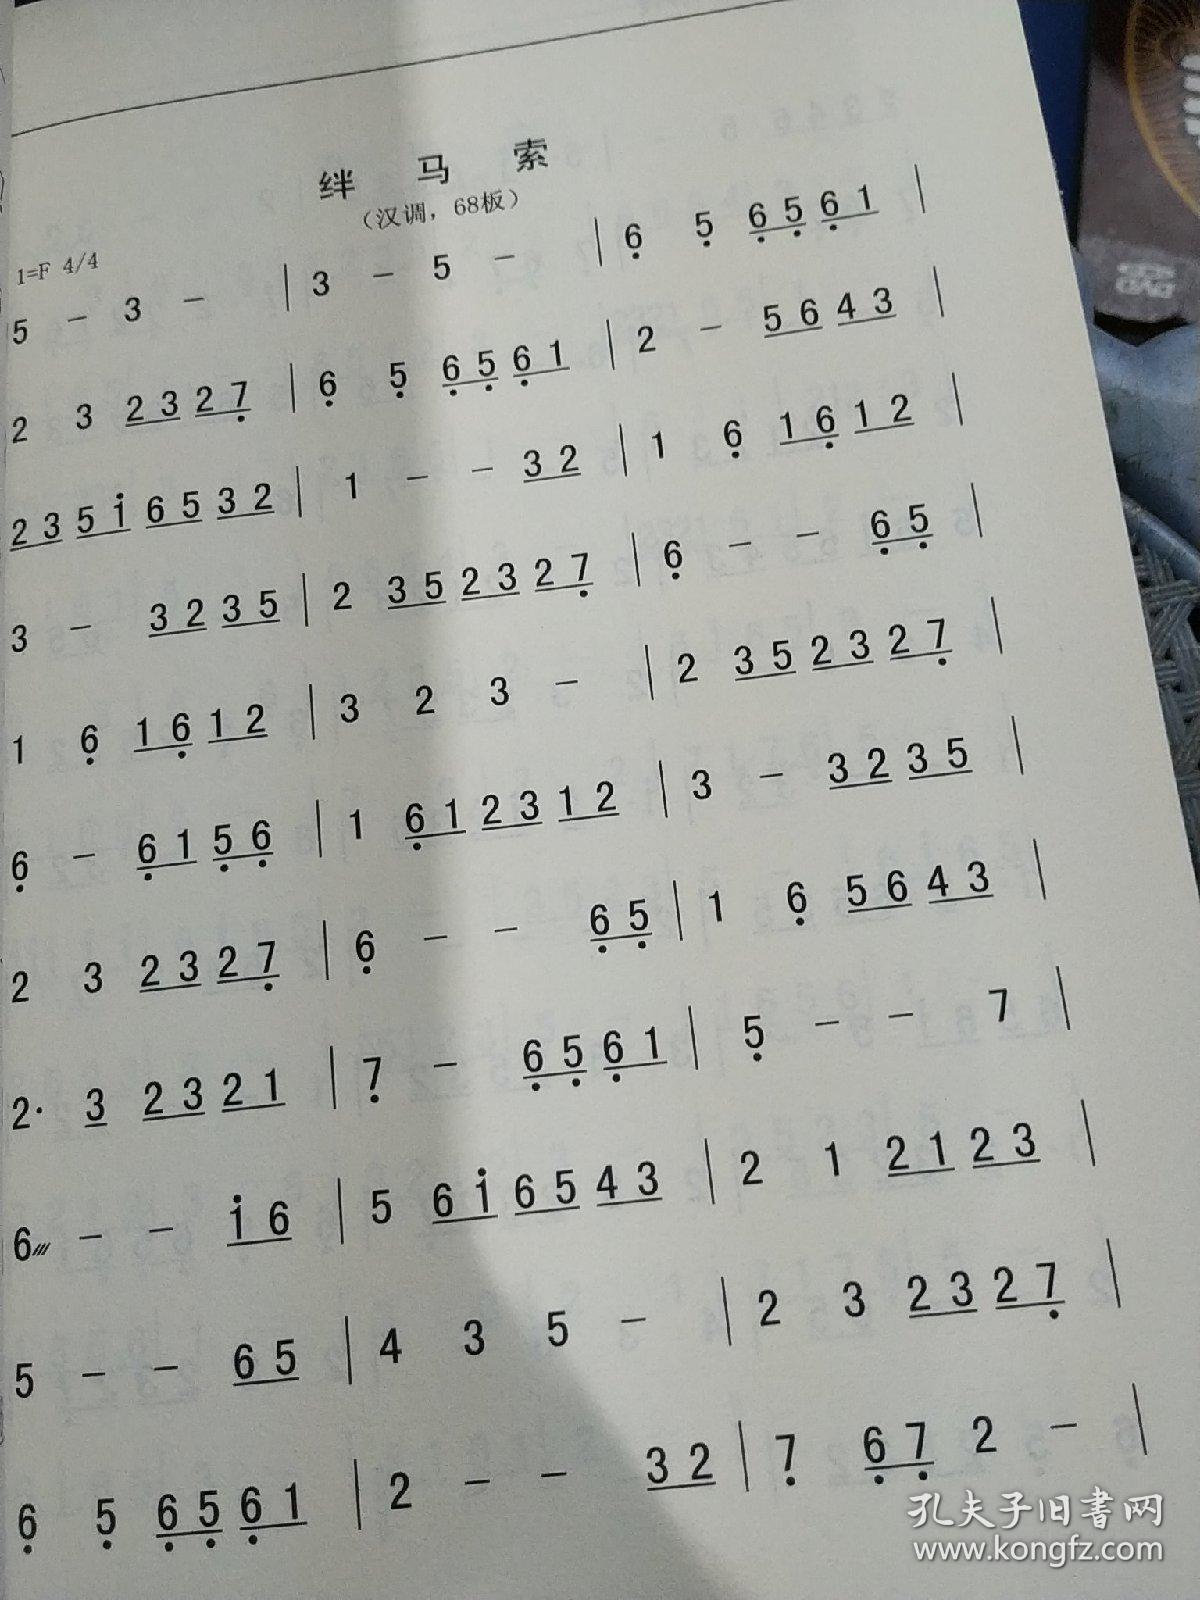 绊 马 索
（汉调，68板）
1=F 4/4
5 － 3 － | 3 － 5 － | 6̣ 5̣ 6̣ 5̣ 6̣ 1 |
2 3 2 3 2 7̣ | 6̣ 5̣ 6̣ 5̣ 6̣ 1 | 2 － 5 6 4 3 |
2 3 5 i 6 5 3 2 | 1 － － 3 2 | 1 6̣ 1 6̣ 1 2 |
3 － 3 2 3 5 | 2 3 5 2 3 2 7̣ | 6̣ － － 6̣ 5̣ |
1 6̣ 1 6̣ 1 2 | 3 2 3 － | 2 3 5 2 3 2 7̣ |
6̣ － 6̣ 1 5̣ 6̣ | 1 6̣ 1 2 3 1 2 | 3 － 3 2 3 5 |
2 3 2 3 2 7̣ | 6̣ － － 6̣ 5̣ | 1 6̣ 5 6 4 3 |
2· 3 2 3 2 1 | 7̣ － 6̣ 5̣ 6̣ 1 | 5̣ － － 7 |
6/// － － i 6 | 5 6 i 6 5 4 3 | 2 1 2 1 2 3 |
5 － － 6 5 | 4 3 5 － | 2 3 2 3 2 7̣ |
6̣ 5̣ 6̣ 5̣ 6̣ 1 | 2 － － 3 2 | 7̣ 6̣ 7̣ 2 － |
孔夫子旧书网
www.kongfz.com